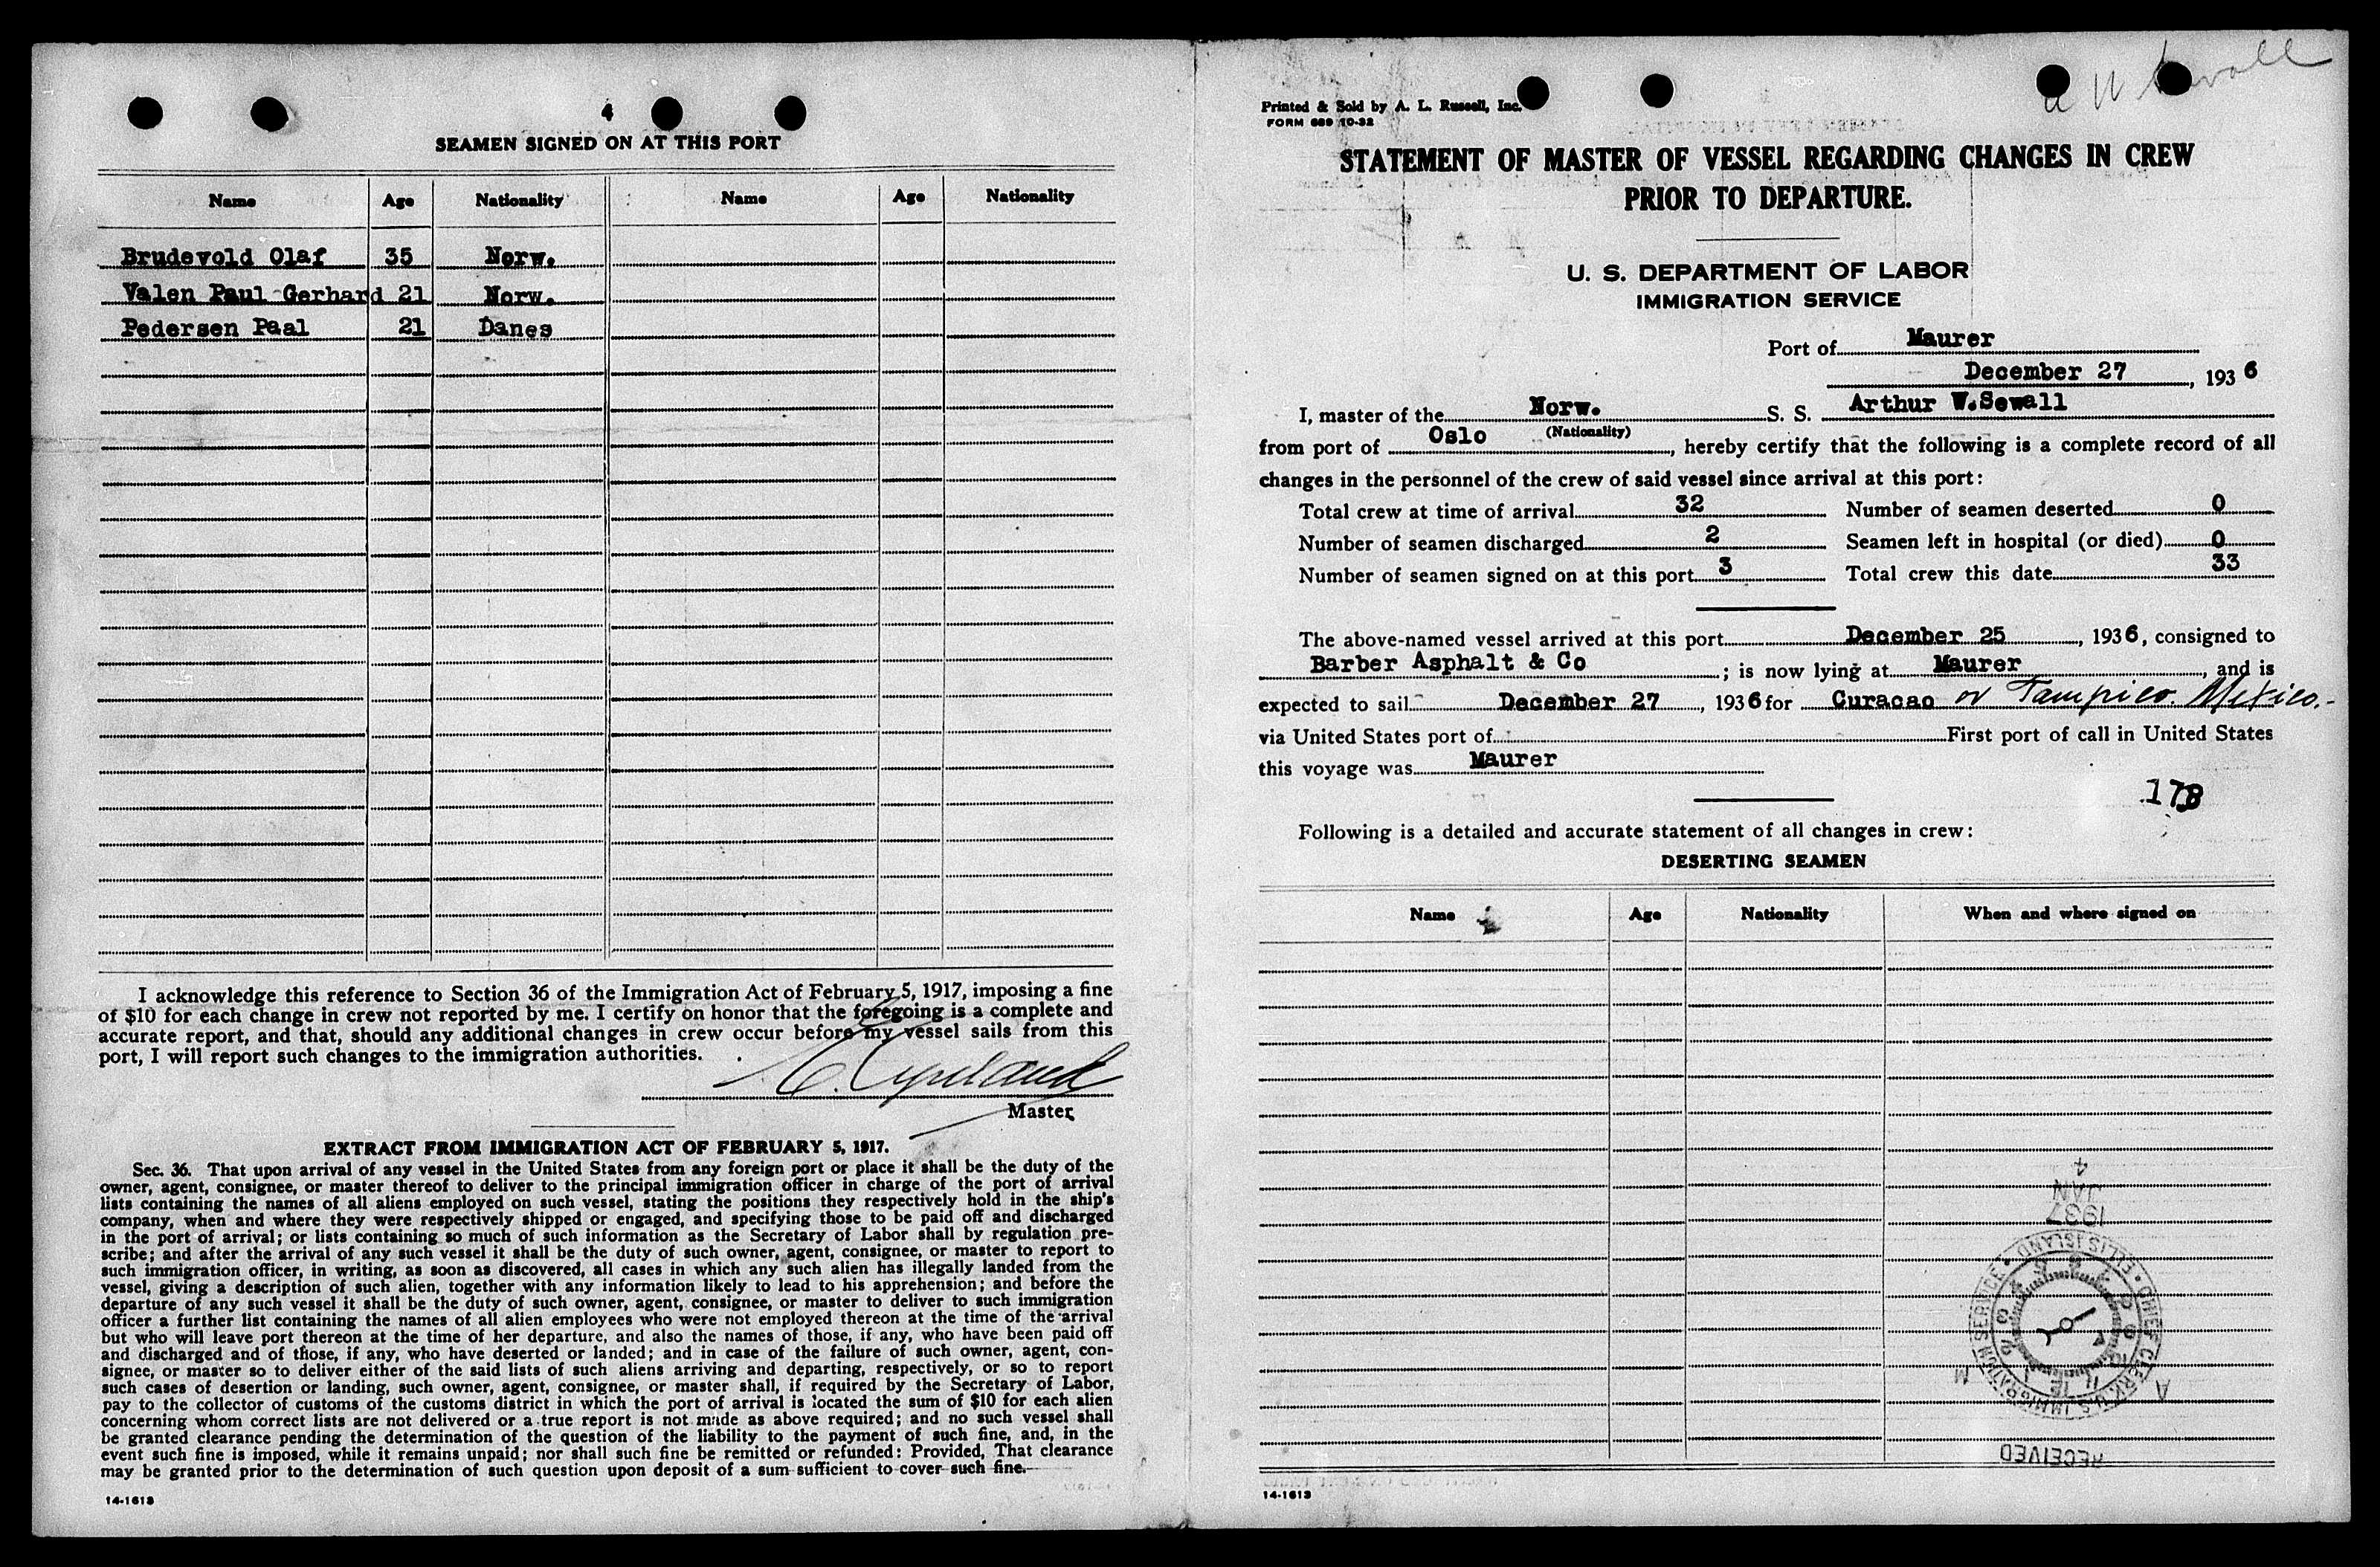 4
SEAMEN SIGNED ON AT THIS PORT
Name Age Nationality Name Age Nationality
Brudevold Olaf 35 Norw.
Valen Paul Gerhard 21 Norw.
Pedersen Paal 21 Danes
I acknowledge this reference to Section 36 of the Immigration Act of February 5, 1917, imposing a fine
of $10 for each change in crew not reported by me. I certify on honor that the foregoing is a complete and
accurate report, and that, should any additional changes in crew occur before my vessel sails from this
port, I will report such changes to the immigration authorities.
Master
EXTRACT FROM IMMIGRATION ACT OF FEBRUARY 5, 1917.
Sec. 36. That upon arrival of any vessel in the United States from any foreign port or place it shall be the duty of the
owner, agent, consignee, or master thereof to deliver to the principal immigration officer in charge of the port of arrival
lists containing the names of all aliens employed on such vessel, stating the positions they respectively hold in the ship's
company, when and where they were respectively shipped or engaged, and specifying those to be paid off and discharged
in the port of arrival; or lists containing so much of such information as the Secretary of Labor shall by regulation pre-
scribe; and after the arrival of any such vessel it shall be the duty of such owner, agent, consignee, or master to report to
such immigration officer, in writing, as soon as discovered, all cases in which any such alien has illegally landed from the
vessel, giving a description of such alien, together with any information likely to lead to his apprehension; and before the
departure of any such vessel it shall be the duty of such owner, agent, consignee, or master to deliver to such immigration
officer a further list containing the names of all alien employees who were not employed thereon at the time of the arrival
but who will leave port thereon at the time of her departure, and also the names of those, if any, who have been paid off
and discharged and of those, if any, who have deserted or landed; and in case of the failure of such owner, agent, con-
signee, or master so to deliver either of the said lists of such aliens arriving and departing, respectively, or so to report
such cases of desertion or landing, such owner, agent, consignee, or master shall, if required by the Secretary of Labor,
pay to the collector of customs of the customs district in which the port of arrival is located the sum of $10 for each alien
concerning whom correct lists are not delivered or a true report is not made as above required; and no such vessel shall
be granted clearance pending the determination of the question of the liability to the payment of such fine, and, in the
event such fine is imposed, while it remains unpaid; nor shall such fine be remitted or refunded: Provided, That clearance
may be granted prior to the determination of such question upon deposit of a sum sufficient to cover such fine.
14-1613
Printed & Sold by A. L. Russell, Inc.
FORM 689 10-32
STATEMENT OF MASTER OF VESSEL REGARDING CHANGES IN CREW
PRIOR TO DEPARTURE.
U. S. DEPARTMENT OF LABOR
IMMIGRATION SERVICE
Port of Maurer
December 27, 1936
I, master of the Norw. S. S. Arthur W.Sewall
(Nationality)
from port of Oslo, hereby certify that the following is a complete record of all
changes in the personnel of the crew of said vessel since arrival at this port:
Total crew at time of arrival 32 Number of seamen deserted 0
Number of seamen discharged 2 Seamen left in hospital (or died) 0
Number of seamen signed on at this port 3 Total crew this date 33
The above-named vessel arrived at this port December 25, 1936, consigned to
Barber Asphalt & Co; is now lying at Maurer, and is
expected to sail December 27, 1936 for Curacao or Tampico. Mexico.-
via United States port of First port of call in United States
this voyage was Maurer
178
Following is a detailed and accurate statement of all changes in crew:
DESERTING SEAMEN
Name Age Nationality When and where signed on
RECEIVED
CHIEF CLERK U.S. IMMIGRATION SERVICE • ELLIS ISLAND •
A M
1937
JAN
4
14-1613